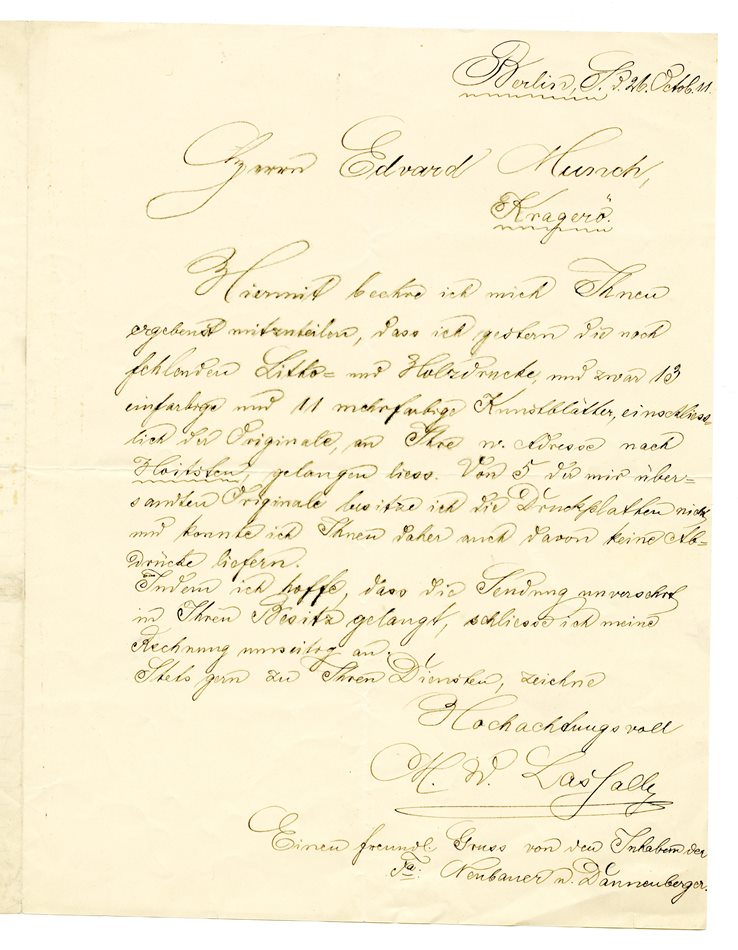 Berlin, S. d. 26. Octob. 11.
Herrn Edvard Munch,
Kragerö.
Hiermit beehre ich mich Ihnen
ergebenst mitzuteilen, dass ich gestern die noch
fehlenden Litho= und Holzdrucke, und zwar 13
einfarbige und 11 mehrfarbige Kunstblätter, einschliess=
lich der Originale, an Ihre w. Adresse nach
Hvitsten, gelangen liess. Von 5 der mir über=
sandten Originale besitze ich die Druckplatten nicht
und konnte ich Ihnen daher auch davon keine Ab=
drücke liefern.
Indem ich hoffe, dass die Sendung unversehrt
in Ihren Besitz gelangt, schliesse ich meine
Rechnung umseitig an.
Stets gern zu Ihren Diensten, zeichne
Hochachtungsvoll
M. W. Lassally
Einen freundl. Gruss von den Inhabern der
Fa: Neubauer u. Dannenberger.